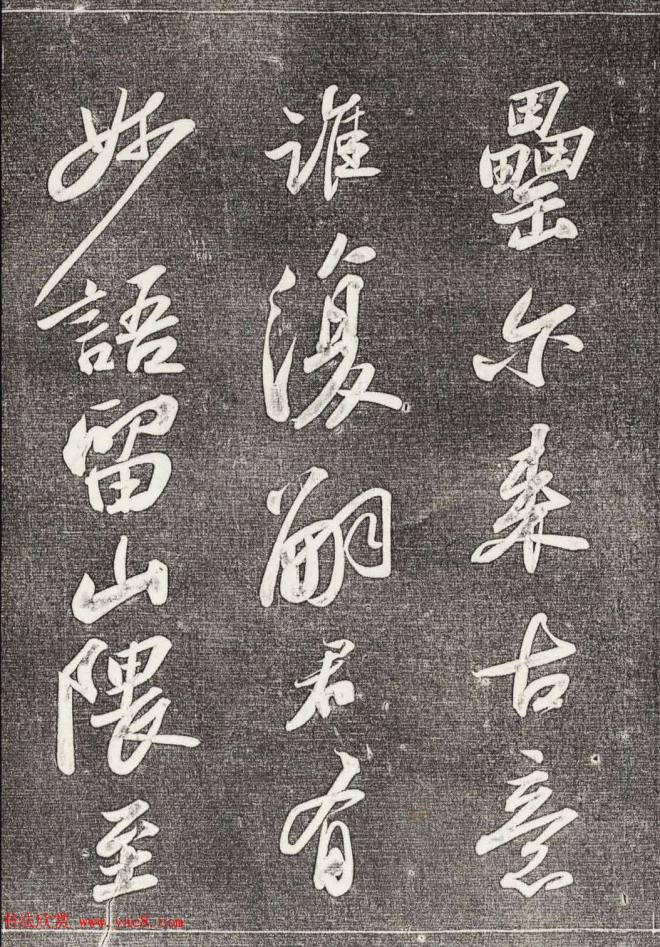 罍尔来古意
谁復嗣君有
妙語留山隈至
书法欣赏 www.yac8.com